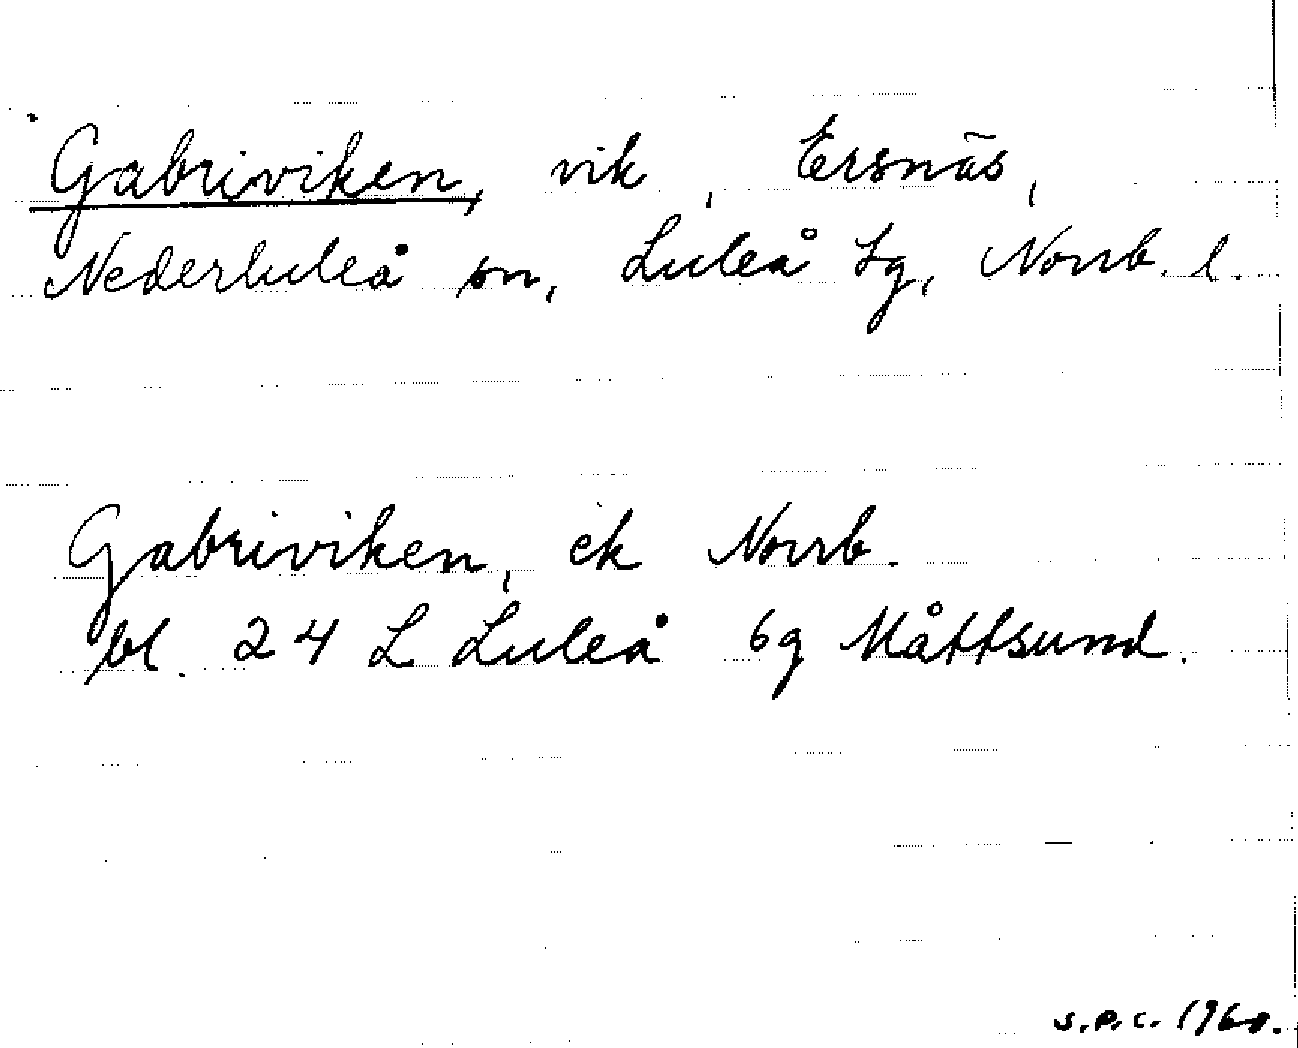 Gabriviken, vik, Ersnäs,
Nederluleå sn, Luleå tg, Norrb. l.
Gabriviken, ek Norrb.
bl. 24 L Luleå 6g Måttsund.
S.P.C. 1960.